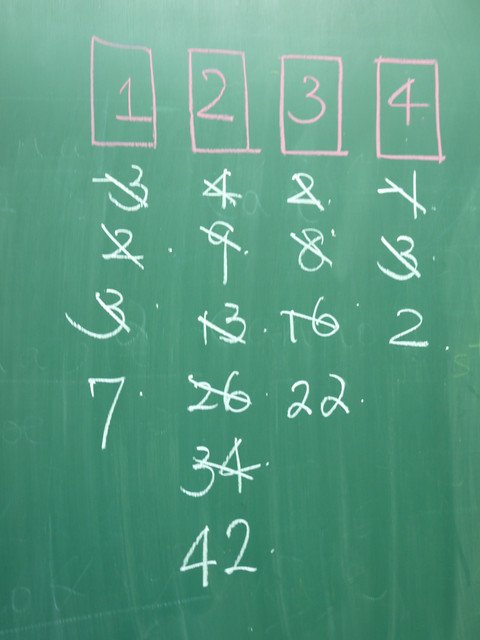 1 2 3 4
3 4 2 1
2 9 8 3
3 13 16 2
7 26 22
34
42